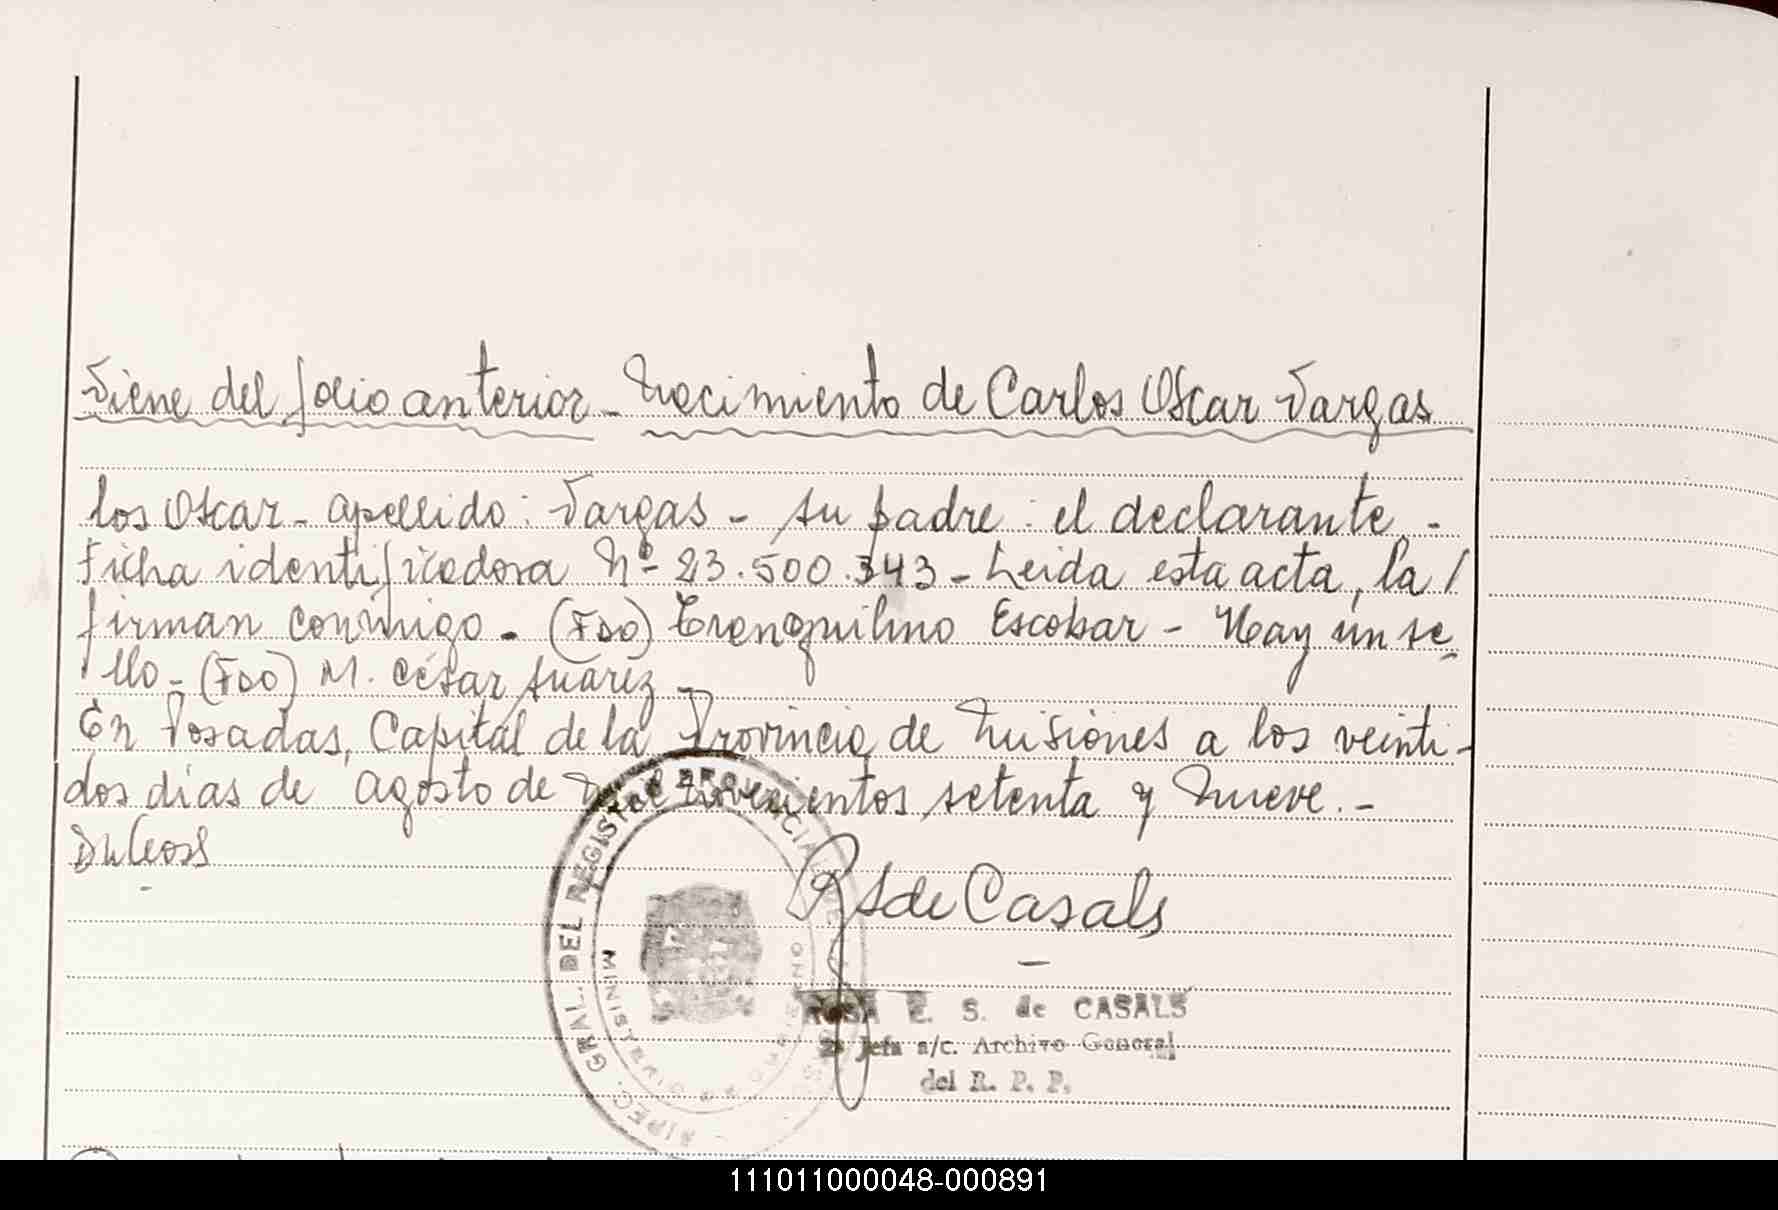 Viene del folio anterior - Nacimiento de Carlos Oscar Vargas
los Oscar - apellido: Vargas - su padre: el declarante -
Ficha identificadora Nº 23.500.343 - Leida esta acta, la /
firman conmigo. (FDO) Tranquilino Escobar - Hay un se
llo - (FDO) M. César Suarez -
En Posadas, Capital de la Provincia de Misiones a los veinti-
dos días de agosto de mil novecientos setenta y nueve. -
DIREC. GRAL. DEL REGISTRO PROVINCIAL DE
MINISTERIO DE GOBIERNO
RS de Casals
ROSA E. S. de CASALS
2ª Jefa a/c. Archivo General
del R. P. P.
111011000048-000891